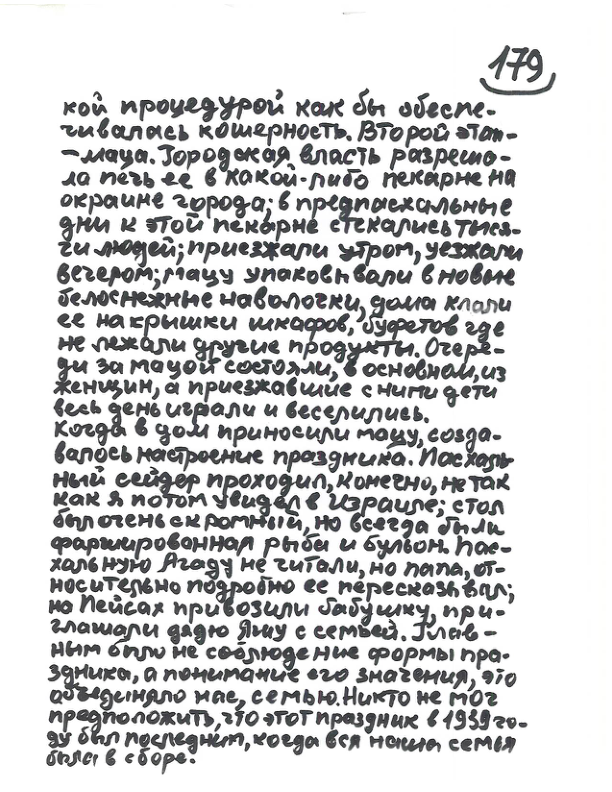 179
кой процедурой как бы обеспе-
чивалась кошерность. Второй этап-
-маца. Городская власть разреша-
ла печь ее в какой-либо пекарне на
окраине города; в предпасхальные
дни к этой пекарне стекались тыся-
чи людей; приезжали утром, уезжали
вечером; мацу упаковывали в новые
белоснежные наволочки, дома клали
ее на крышки шкафов, буфетов где
не лежали другие продукты. Очере-
ди за мацой состояли, в основном, из
женщин, а приезжавшие с ними дети
весь день играли и веселились.
Когда в дом приносили мацу, созда-
валось настроение праздника. Пасхаль-
ный сейдер проходил, конечно, не так
как я потом увидел в Израиле; стол
был очень скромный, но всегда были
фаршированная рыба и бульон. Пас-
хальную Агаду не читали, но папа, от-
носительно подробно ее пересказывал;
на Пейсах привозили бабушку, при-
глашали дядю Яшу с семьей. Глав-
ным было не соблюдение формы пра-
здника, а понимание его значения, это
объединяло нас, семью. Никто не мог
предположить, что этот праздник в 1939 го-
ду был последним, когда вся наша семья
была в сборе.